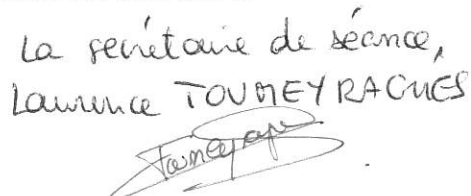 La secrétaire de séance,
Laurence TOUMEYRAGUES